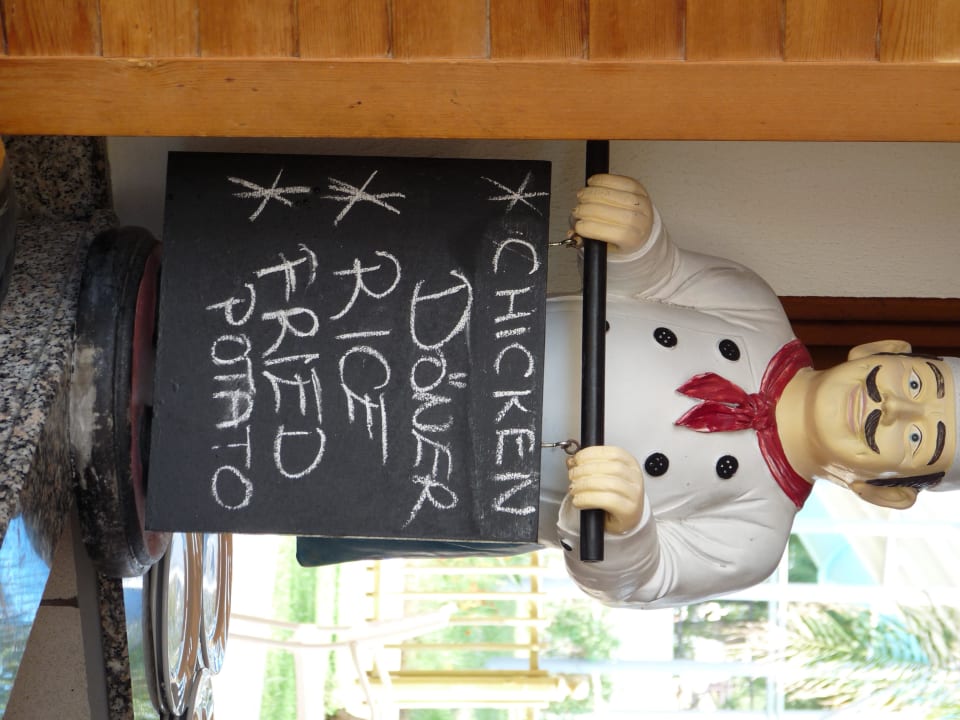 * CHICKEN
DÖNER
* RICE
* FRIED
POTATO